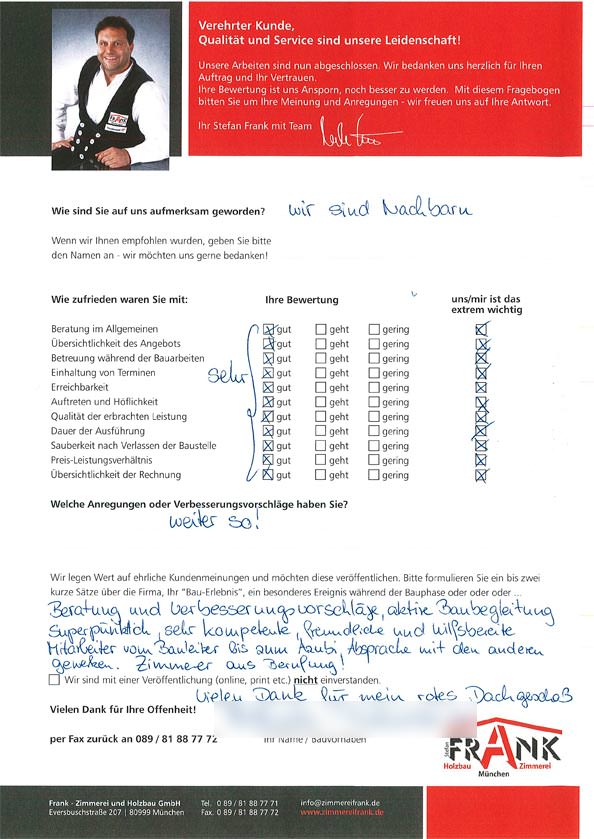 Verehrter Kunde,
Qualität und Service sind unsere Leidenschaft!
Unsere Arbeiten sind nun abgeschlossen. Wir bedanken uns herzlich für Ihren
Auftrag und Ihr Vertrauen.
Ihre Bewertung ist uns Ansporn, noch besser zu werden. Mit diesem Fragebogen
bitten Sie um Ihre Meinung und Anregungen - wir freuen uns auf Ihre Antwort.
Ihr Stefan Frank mit Team
Wie sind Sie auf uns aufmerksam geworden? wir sind Nachbarn
Wenn wir Ihnen empfohlen wurden, geben Sie bitte
den Namen an - wir möchten uns gerne bedanken!
Wie zufrieden waren Sie mit: Ihre Bewertung uns/mir ist das
extrem wichtig
Beratung im Allgemeinen gut geht gering
Übersichtlichkeit des Angebots gut geht gering
Betreuung während der Bauarbeiten gut geht gering
Einhaltung von Terminen sehr gut geht gering
Erreichbarkeit gut geht gering
Auftreten und Höflichkeit gut geht gering
Qualität der erbrachten Leistung gut geht gering
Dauer der Ausführung gut geht gering
Sauberkeit nach Verlassen der Baustelle gut geht gering
Preis-Leistungsverhältnis gut geht gering
Übersichtlichkeit der Rechnung gut geht gering
Welche Anregungen oder Verbesserungsvorschläge haben Sie?
weiter so!
Wir legen Wert auf ehrliche Kundenmeinungen und möchten diese veröffentlichen. Bitte formulieren Sie ein bis zwei
kurze Sätze über die Firma, Ihr "Bau-Erlebnis", ein besonderes Ereignis während der Bauphase oder oder oder ...
Beratung und Verbesserungsvorschläge, aktive Baubegleitung
Superpünktlich, sehr kompetente, freundliche und hilfsbereite
Mitarbeiter vom Bauleiter bis zum Azubi, Absprache mit den anderen
Gewerken. Zimmerer aus Berufung!
Wir sind mit einer Veröffentlichung (online, print etc.) nicht einverstanden.
Vielen Dank für mein rotes Dachgeschoß
Vielen Dank für Ihre Offenheit!
per Fax zurück an 089 / 81 88 77 72 Ihr Name / Bauvorhaben
Stefan
FRANK
Holzbau Zimmerei
München
Frank - Zimmerei und Holzbau GmbH Tel. 0 89 / 81 88 77 71 info@zimmereifrank.de
Eversbuschstraße 207 | 80999 München Fax. 0 89 / 81 88 77 72 www.zimmereifrank.de